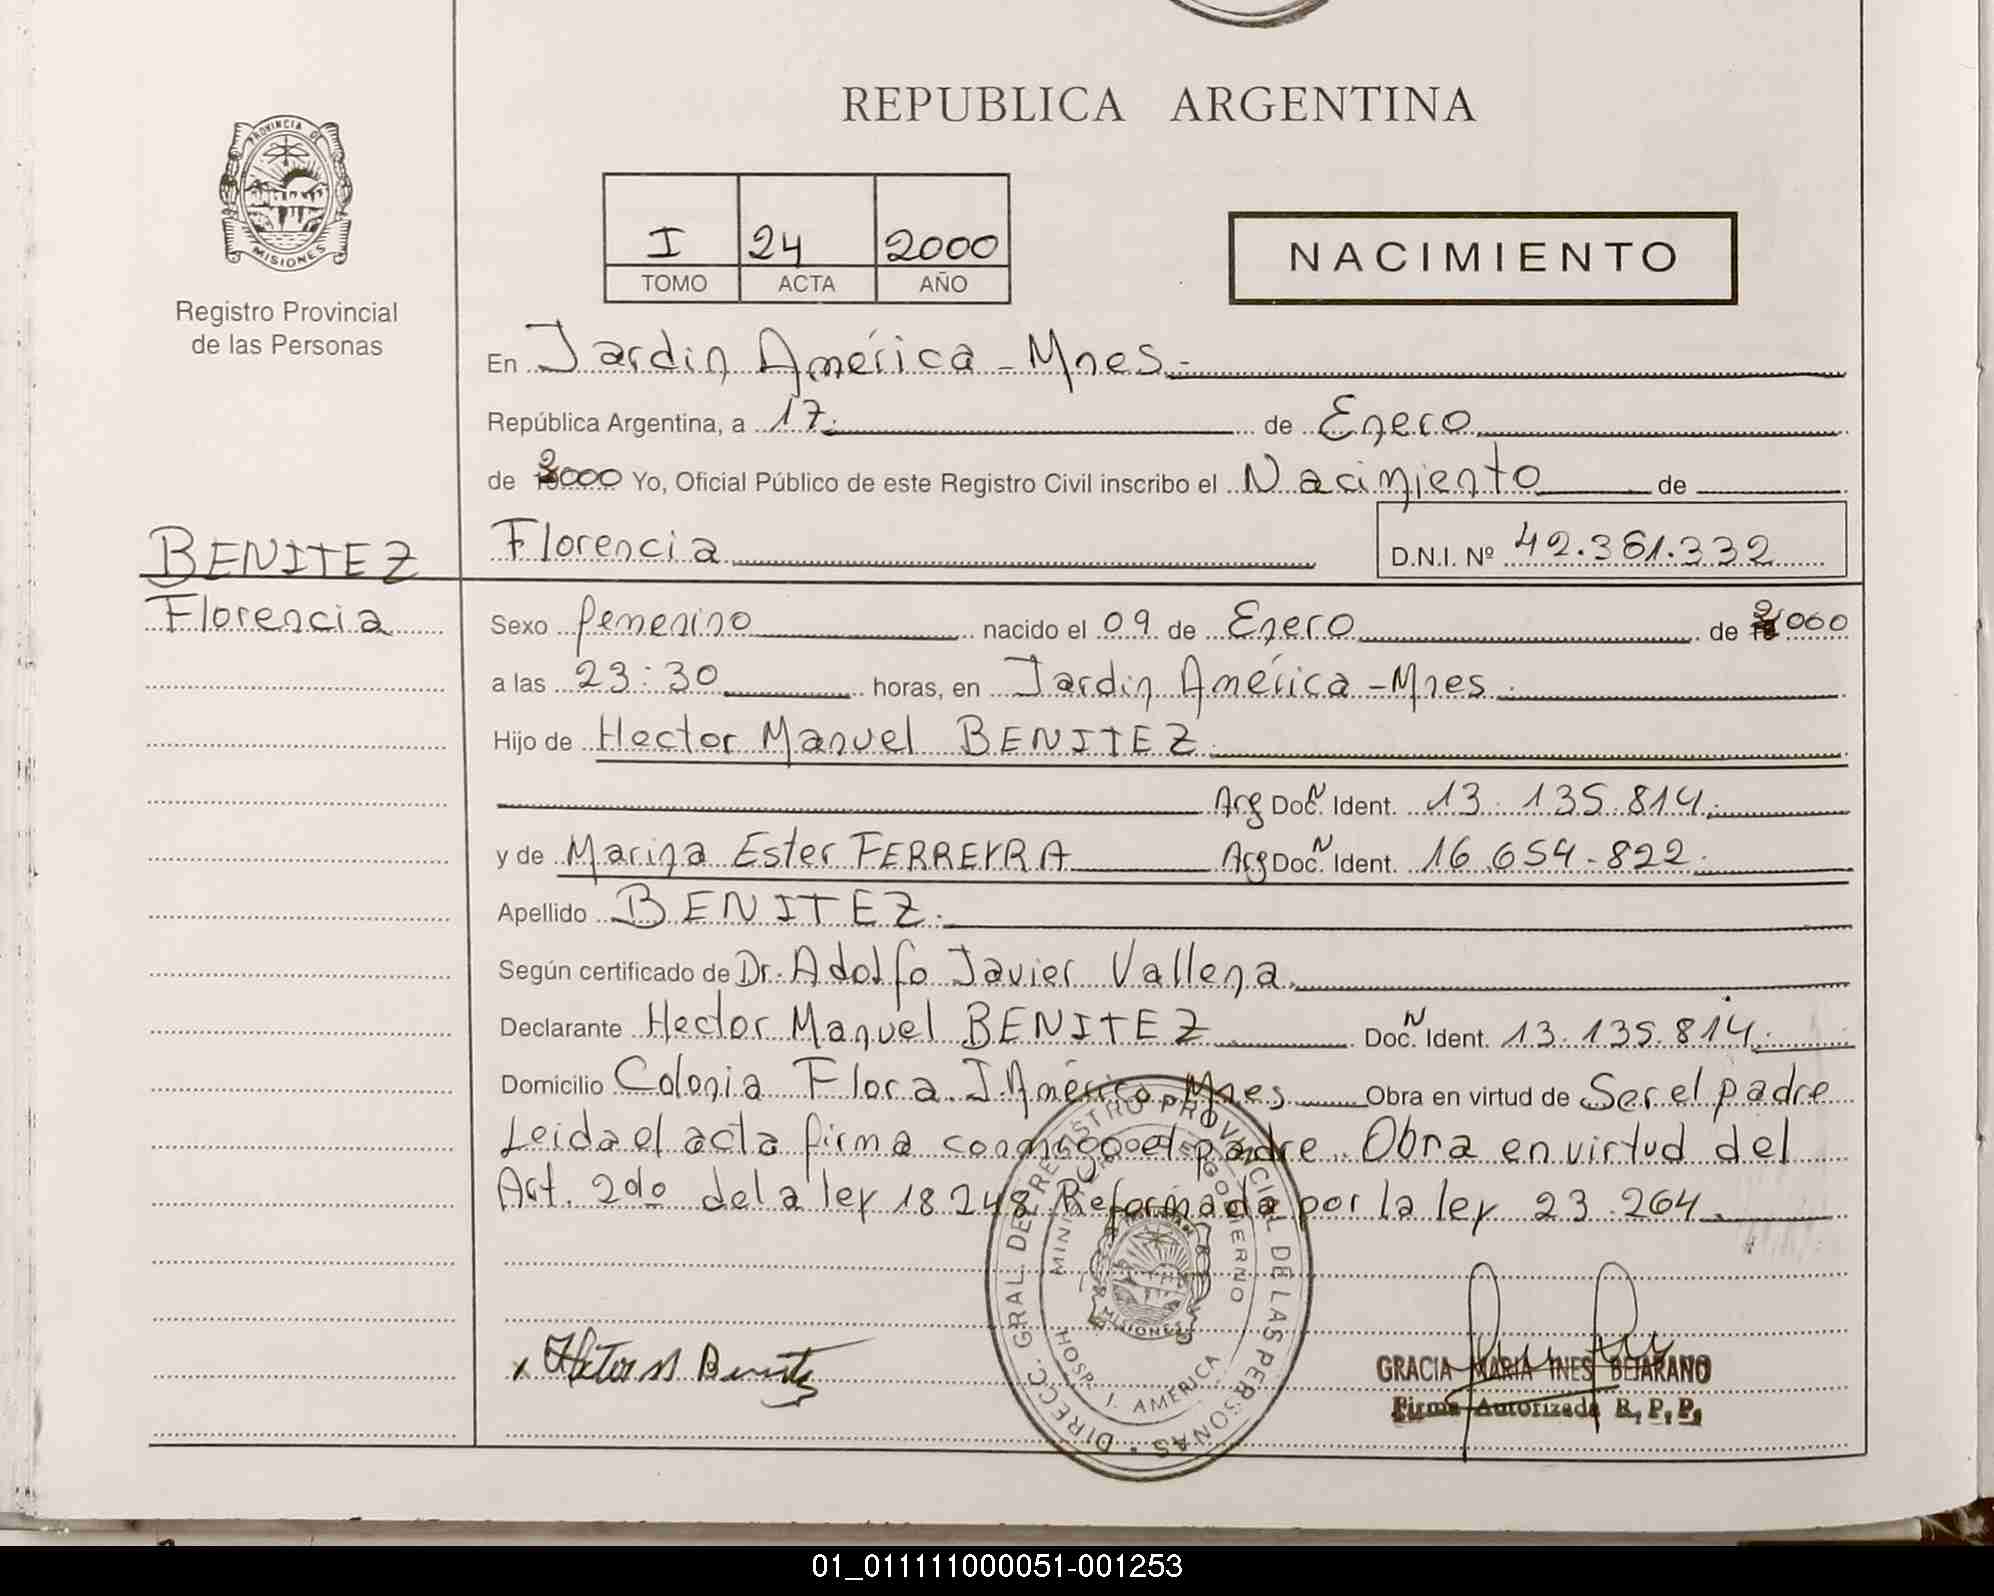 REPUBLICA ARGENTINA
PROVINCIA DE
MISIONES
Registro Provincial
de las Personas
I 24 2000
TOMO ACTA AÑO
NACIMIENTO
En Jardin América - Mnes.-
República Argentina, a 17. de Enero
de 2000 Yo, Oficial Público de este Registro Civil inscribo el Nacimiento de
BENITEZ
Florencia
Florencia D.N.I. Nº 42.361.332
Sexo femenino nacido el 09 de Enero de 2000
a las 23:30 horas, en Jardin América - Mnes.
Hijo de Hector Manuel BENITEZ.
Arg Doc. N Ident. 13.135.814.
y de Marina Ester FERREYRA Arg Doc. N Ident. 16.654.822.
Apellido BENITEZ.
Según certificado de Dr. Adolfo Javier Vallena.
Declarante Hector Manuel BENITEZ Doc. N Ident. 13.135.814.
Domicilio Colonia Flora. J. América Mnes Obra en virtud de Ser el padre
Leida el acta firma conmigo el padre. Obra en virtud del
Art. 2do de la ley 18248 Reformada por la ley 23.264.
DIRECC. GRAL. DE REGISTRO PROVINCIAL DE LAS PERSONAS
MINISTERIO DE GOBIERNO
MISIONES
HOSP. J. AMERICA
x Hector M Benitez
GRACIA MARIA INES BEJARANO
Firma Autorizada R. P. P.
01_011111000051-001253